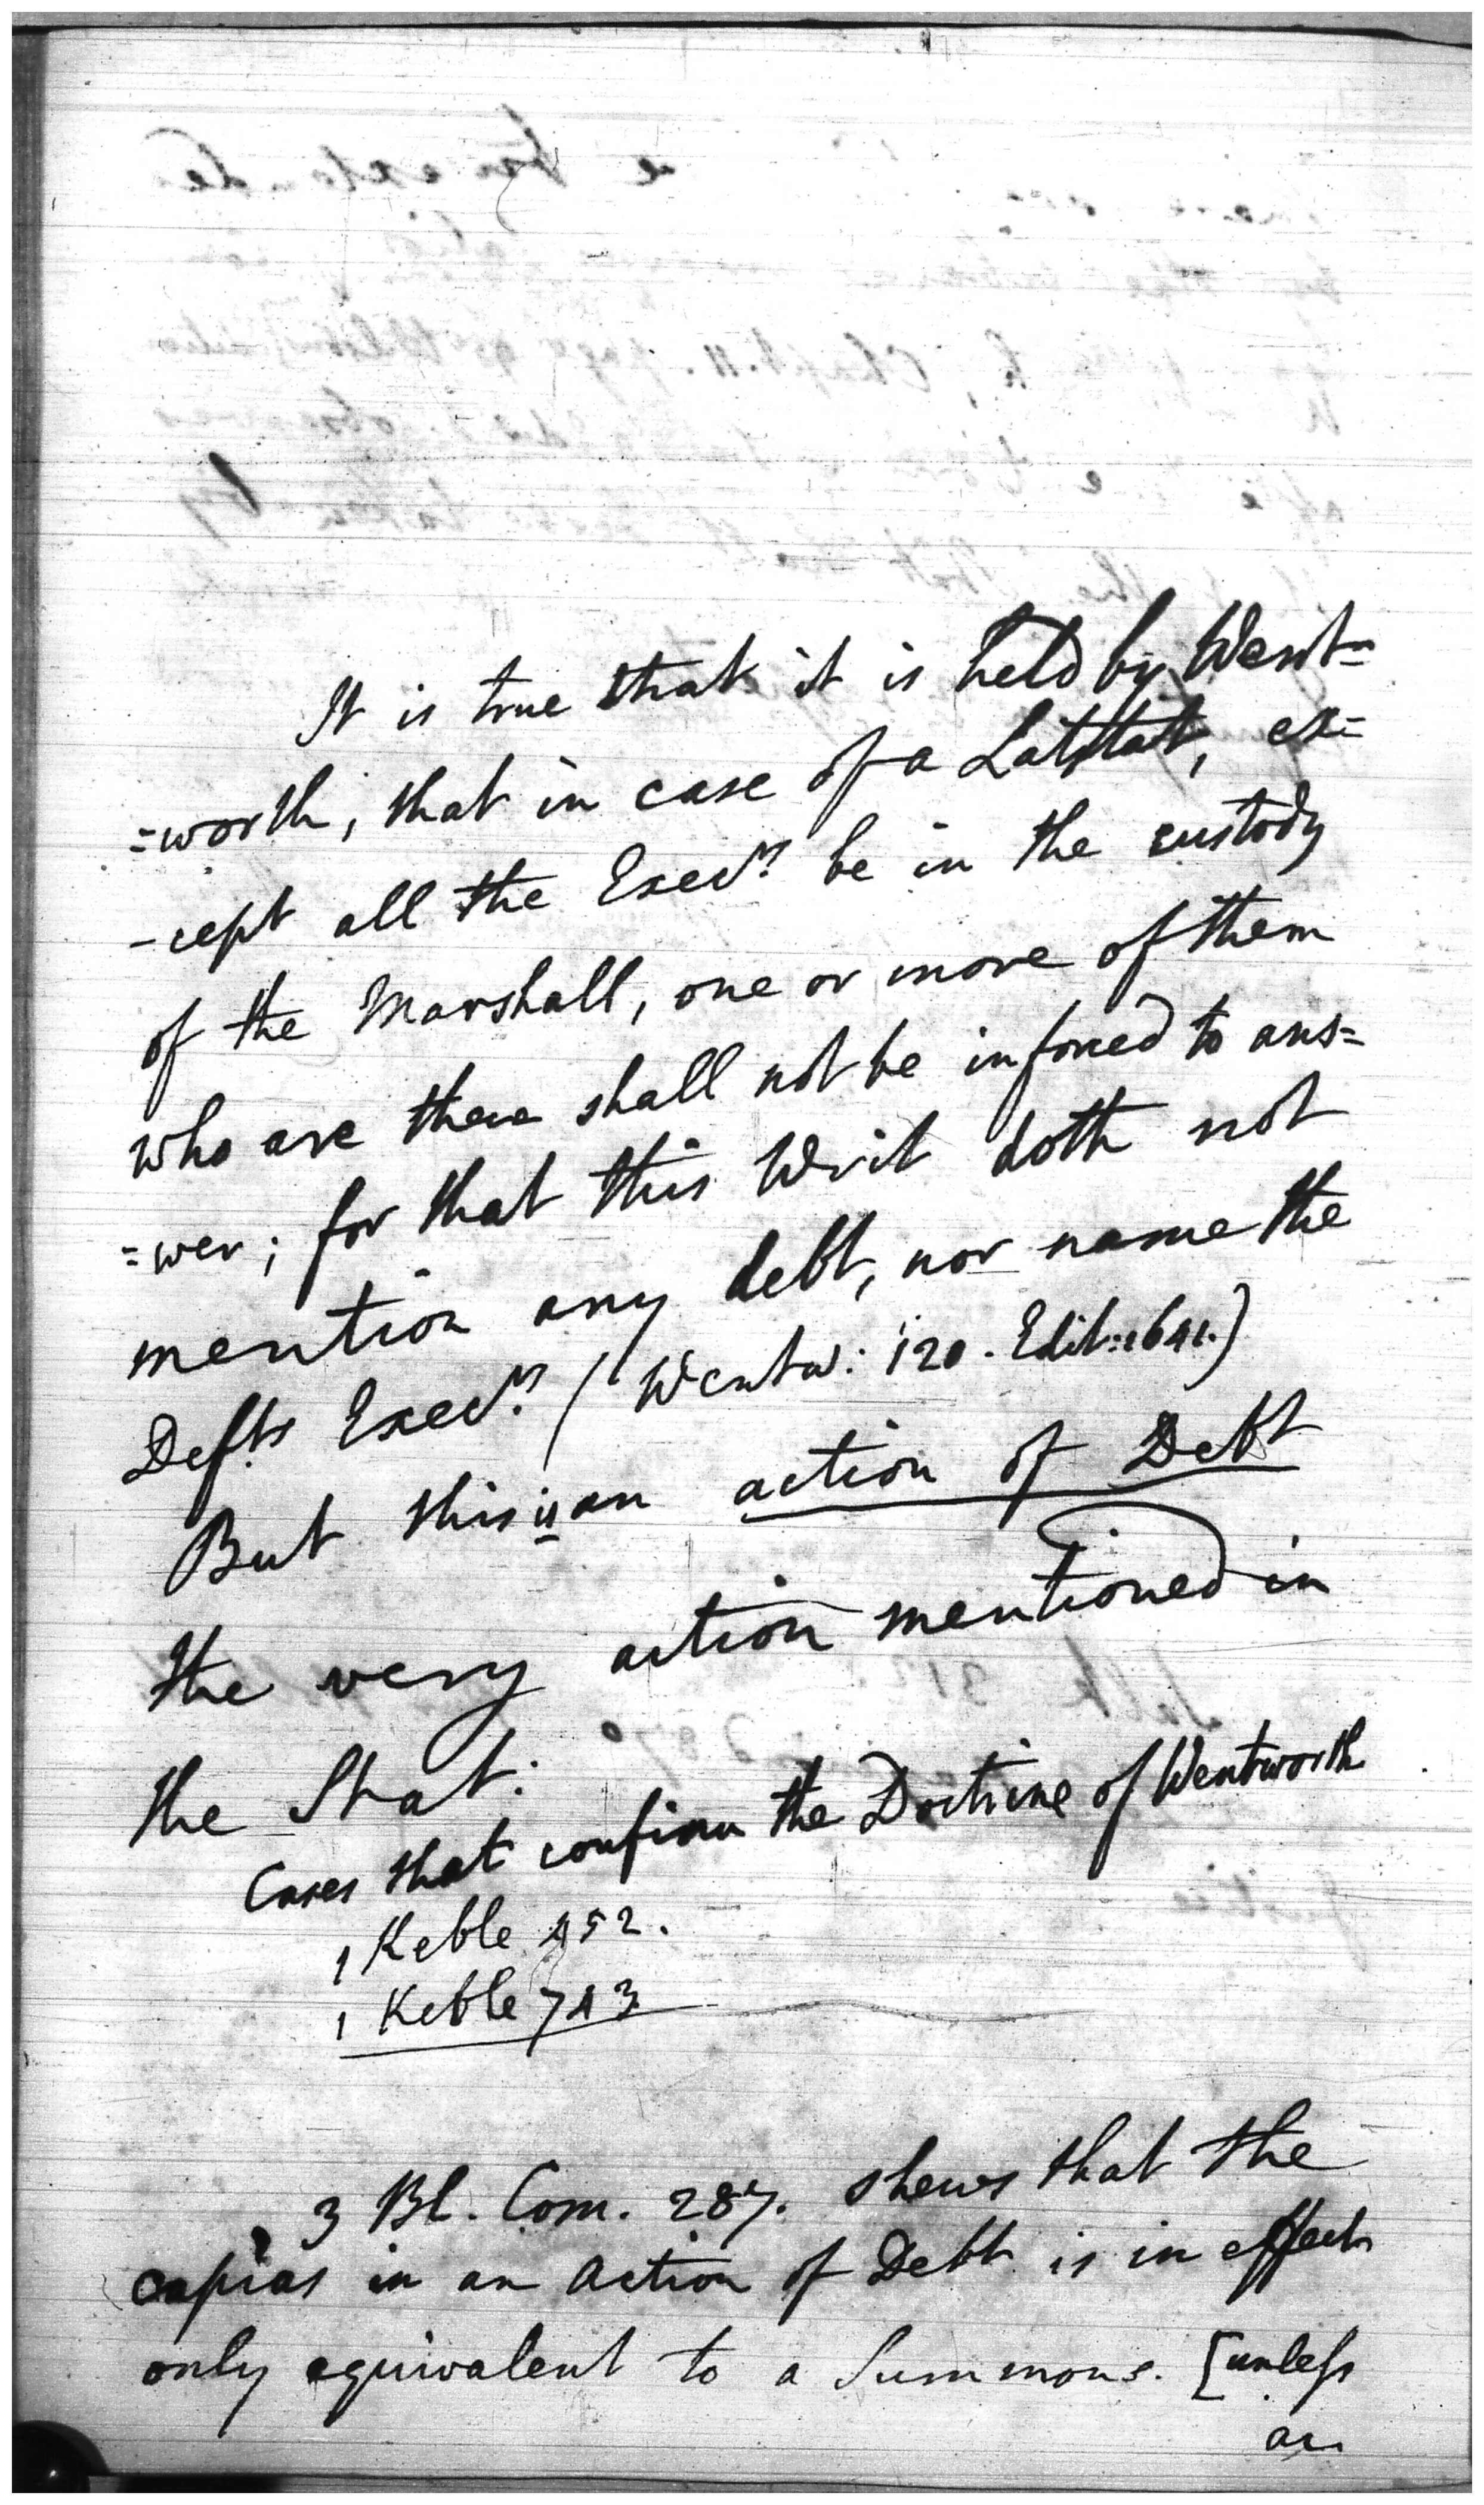 It is true that it is held by Went=
=worth, that in case of a Latitat, ex=
-cept all the Exec.rs be in the custody
of the Marshall, one or more of them
who are there shall not be inforced to ans=
=wer; for that this Writ doth not
mention any debt, nor name the
Defts Exec.rs (Wentw: 120. Edit: 1641.)
But this is an action of Debt
the very action mentioned in
the Stat:
Cases that confirm the Doctrine of Wentworth
1 Keble 452.
1 Keble 743
3 Bl. Com. 287. shews that the
capias in an Action of Debt is in effect
only equivalent to a Summons. [unless
an